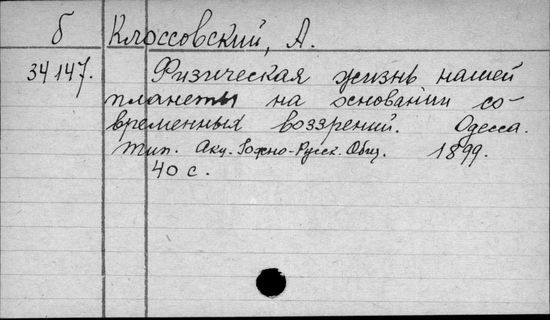 б Клоссовский, А.
34147. Физическая жизнь нашей
планеты на основании со-
временных воззрений. Одесса.
Тип. Акц. Южно-Русск. Общ. 1899.
40 с.